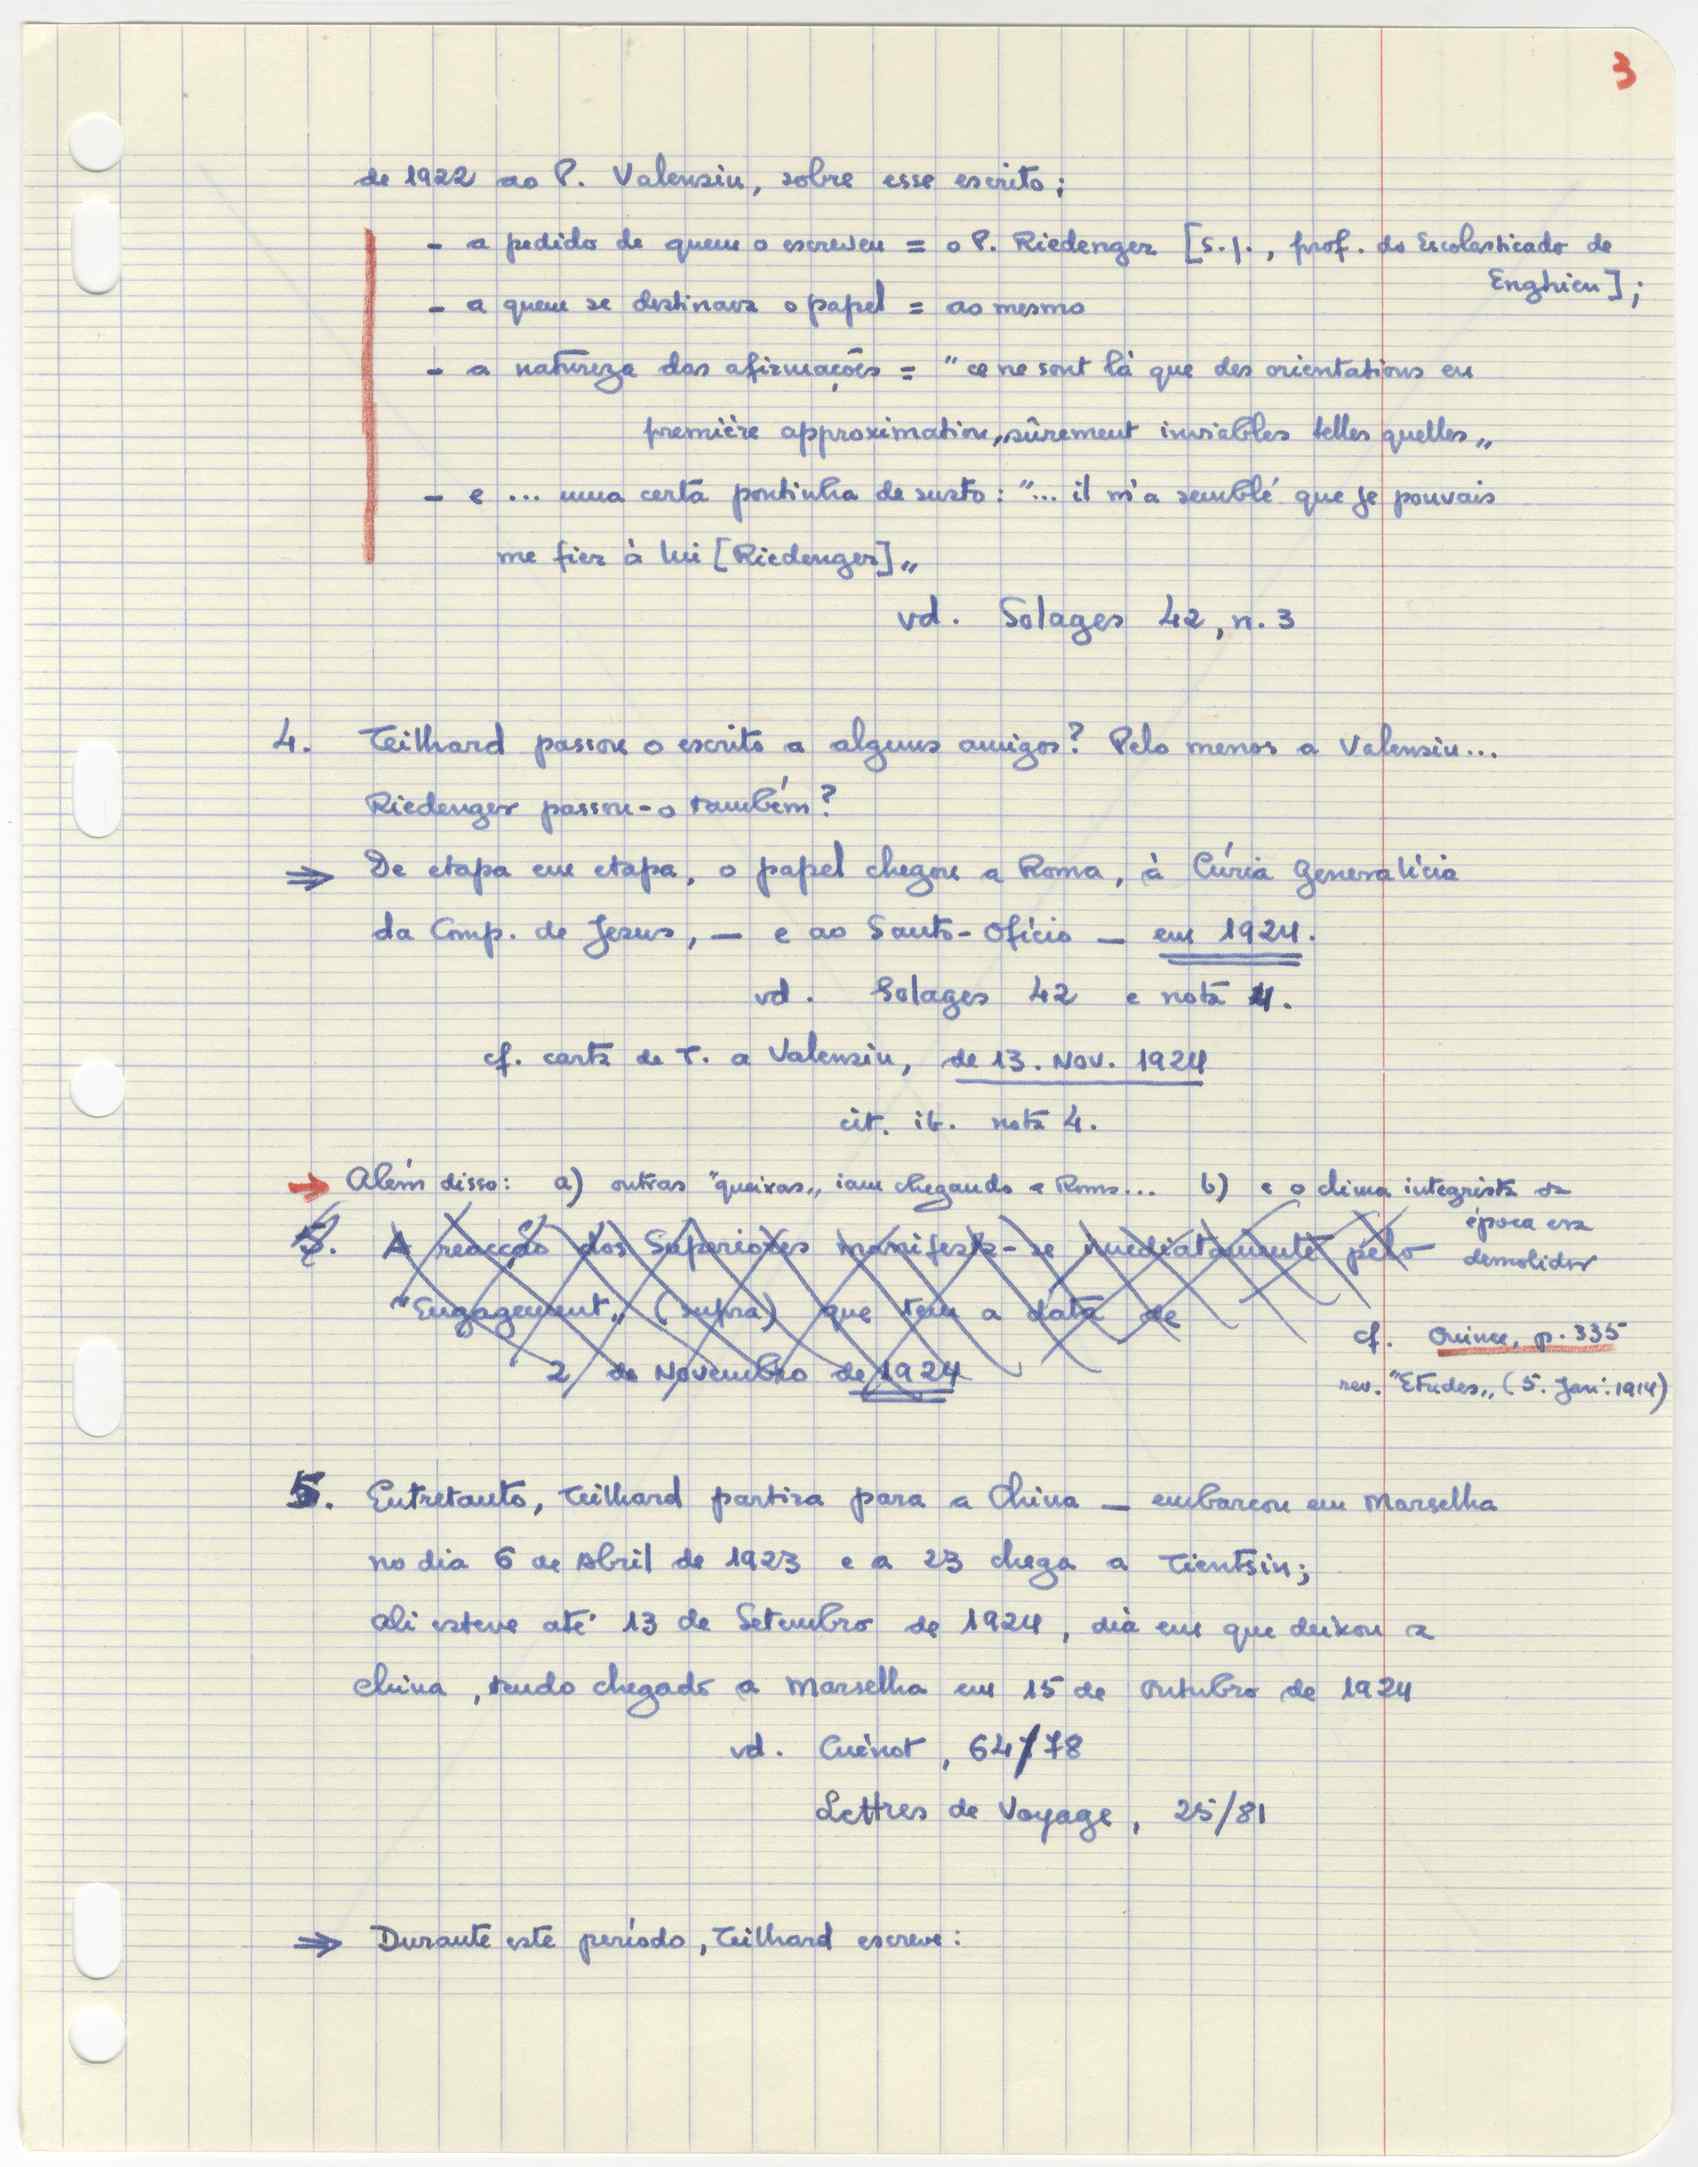 3
de 1922 ao P. Valensin, sobre esse escrito;
- a pedido de quem o escreveu = o P. Riedenger [S.J., prof. do Escolasticado de
Enghien];
- a quem se destinava o papel = ao mesmo
- a natureza das afirmações = "ce ne sont là que des orientations en
première approximation, sûrement inviables telles quelles"
- e ... uma certa pontinha de susto: "... il m'a semblé que je pouvais
me fier à lui [Riedenger]"
vd. Solages 42, n. 3
4. Teilhard passou o escrito a alguns amigos? Pelo menos a Valensin...
Riedenger passou-o também?
⇒ De etapa em etapa, o papel chegou a Roma, à Cúria Generalícia
da Comp. de Jesus, — e ao Santo-Ofício — em 1924.
vd. Solages 42 e nota 4.
cf. carta de T. a Valensin, de 13. Nov. 1924
cit. ib. nota 4.
→ Além disso: a) outras "queixas" iam chegando a Roma... b) e o clima integrista da
época era
demolidor
5. A reacção dos Superiores manifesta-se imediatamente pelo
"Engagement" (supra) que tem a data de
2 de Novembro de 1924
cf. Ouince, p. 335
rev. "Etudes" (5. Jan. 1914)
5. Entretanto, Teilhard partira para a China — embarcou em Marselha
no dia 6 de Abril de 1923 e a 23 chega a Tientsin;
ali esteve até 13 de Setembro de 1924, dia em que deixou a
China, tendo chegado a Marselha em 15 de Outubro de 1924
vd. Cuénot, 64/78
Lettres de Voyage, 25/81
⇒ Durante este período, Teilhard escreve: